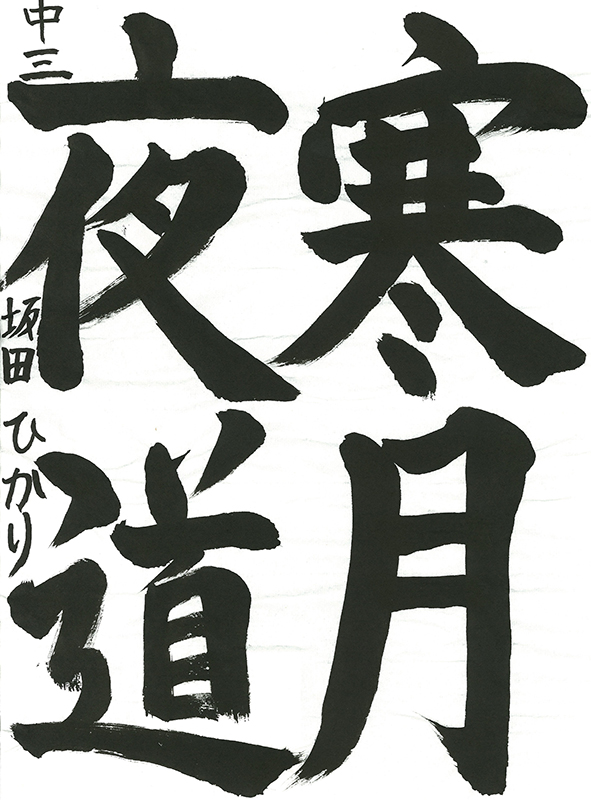 寒月
夜道
中三 坂田 ひかり